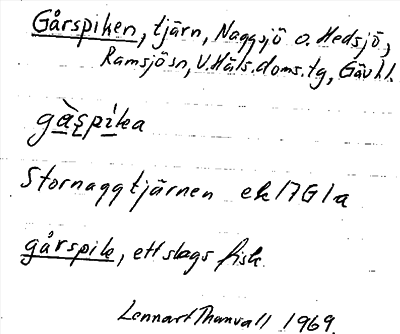 Gårspiken, tjärn, Naggsjö o. Hedsjö,
Ramsjösn, V.Häls.doms.tg, Gävl.l.
gàspika
Stornaggtjärnen ek 17G1a
gårspik, ett slags fisk.
Lennart Thanvall 1969.